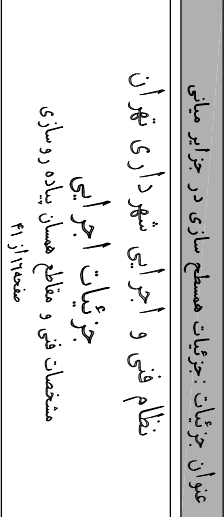 عنوان جزئیات : جزئیات همسطح سازی در جزایر میانی
نظام فنی و اجرایی شهرداری تهران
جزئیات اجرایی
مشخصات فنی و مقاطع همسان پیاده روسازی
صفحه۱۶از ۴۱